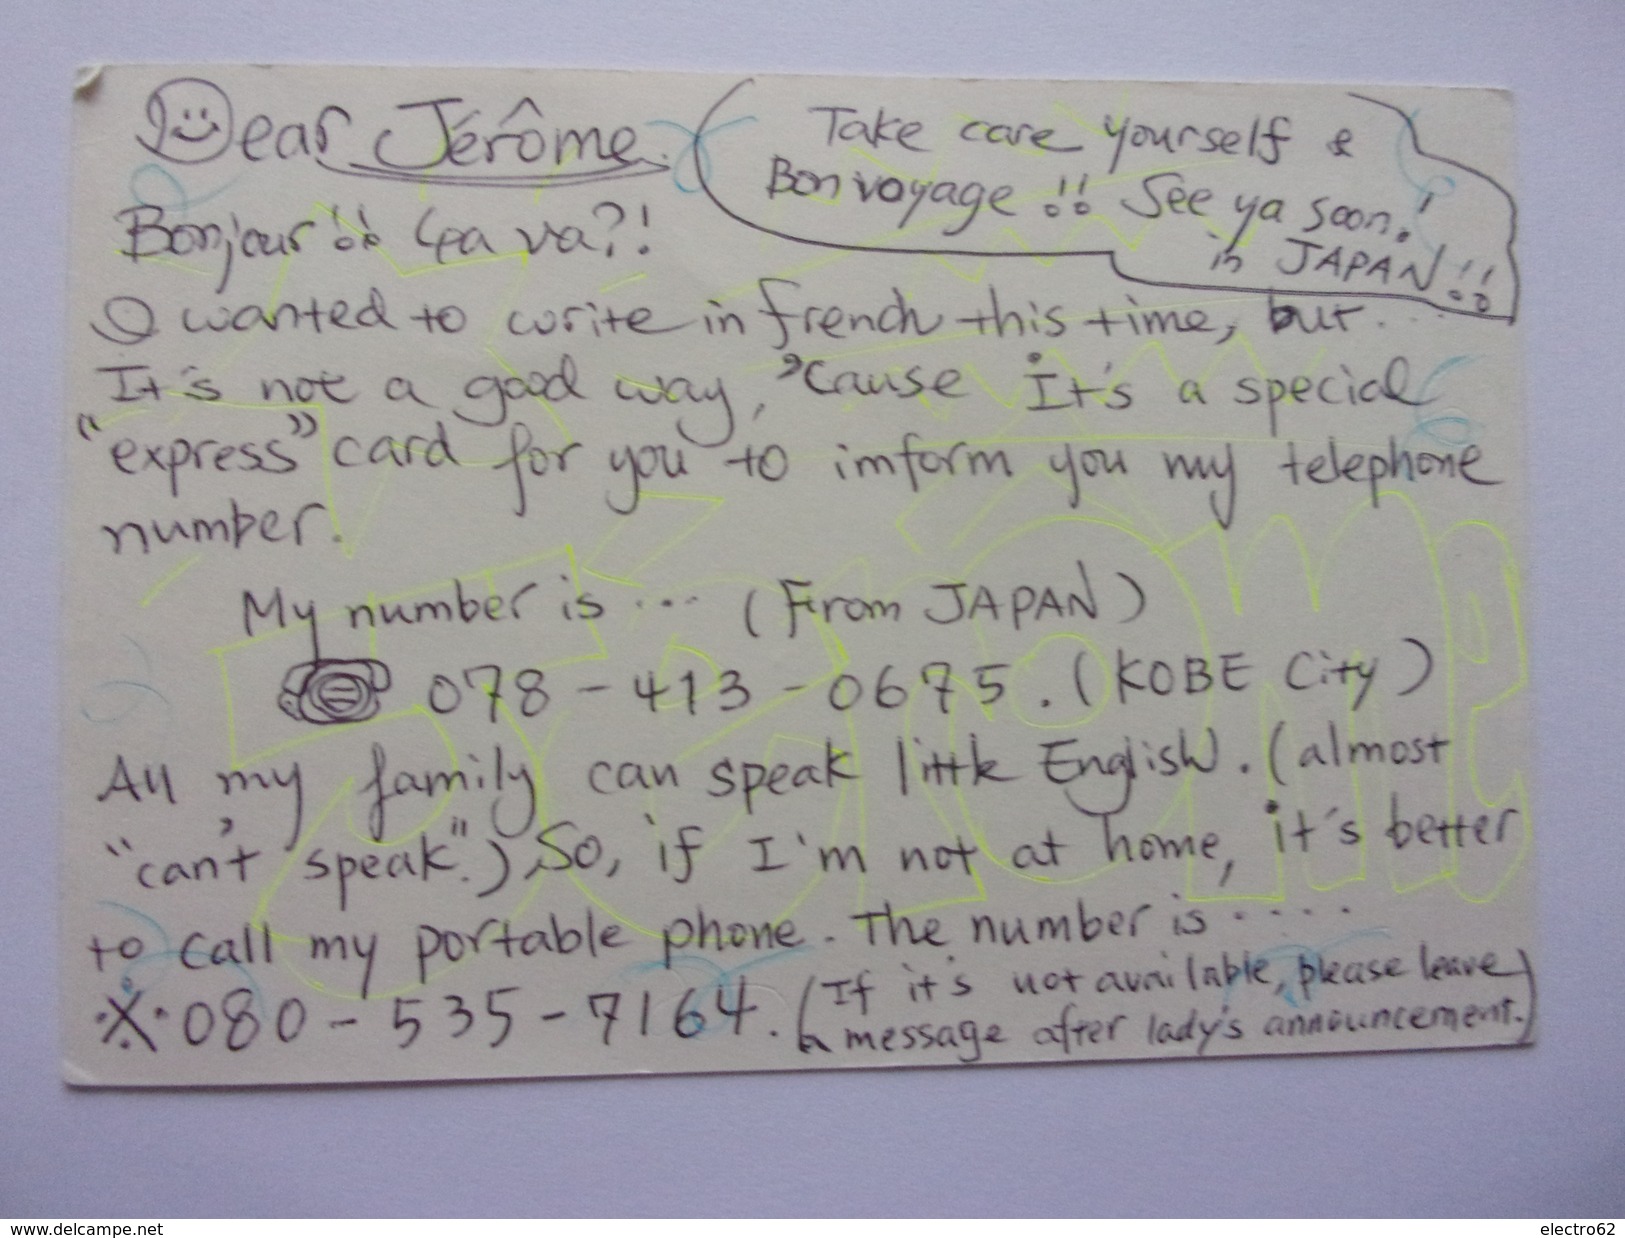 Dear Jérôme.
Bonjour!! Ça va?!
I wanted to write in french this time, but...
It's not a good way, 'cause it's a special
"express" card for you to imform you my telephone
number.
My number is ... (From JAPAN)
078-413-0675. (KOBE City)
All my family can speak little English. (almost
"can't speak".) So, if I'm not at home, it's better
to call my portable phone. The number is .....
※ 080-535-7164. (If it's not available, please leave
a message after lady's announcement.)
Take care yourself &
Bon voyage!! See ya soon!
in JAPAN!!
Jérôme
www.delcampe.net
electro62